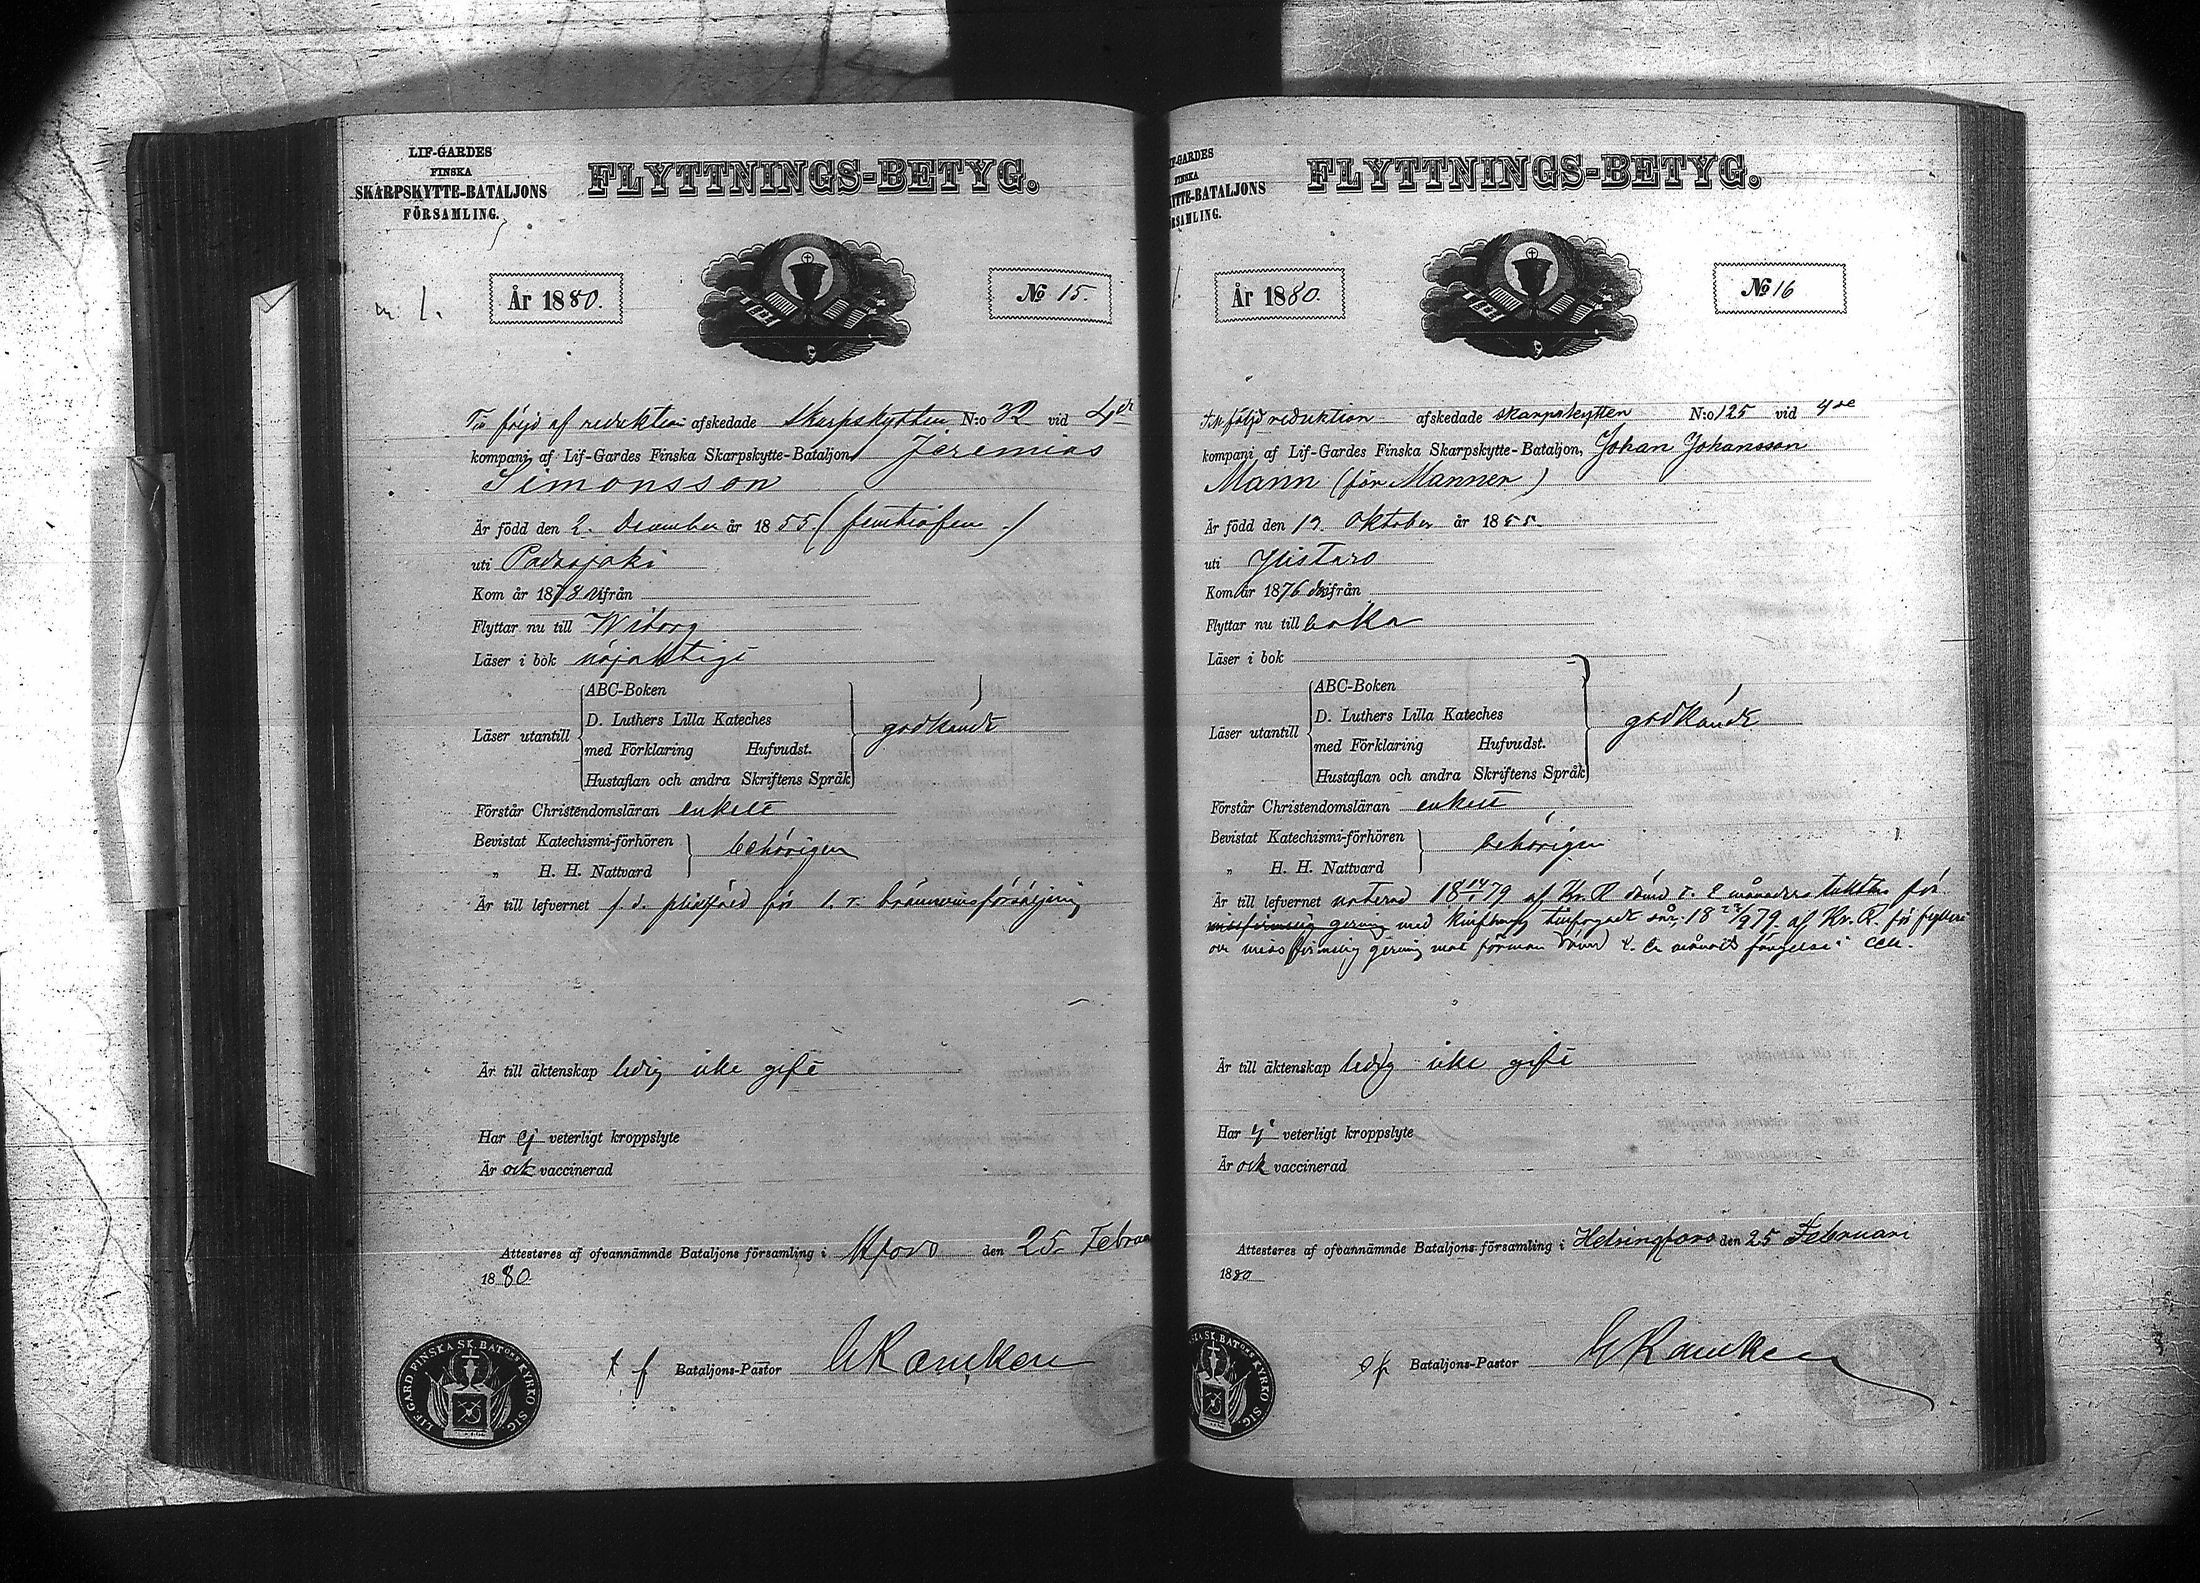 LIF-GARDES
FINSKA
SKARPSKYTTE-BATALJONS
FÖRSAMLING.
FLYTTNINGS-BETYG.
År 1880.
№ 15.
af reduktion afskedade Skarpskytten N:o 32 vid 4de
kompani af Lif-Gardes Finska Skarpskytte-Bataljon, Jeremias
Simonsson
Är född den 2. December år 1855 (femtiofem)
uti Padasjoki
Kom år 1878 ifrån
Flyttar nu till Wiborg
Läser i bok nöjaktigt
Läser utantill
ABC-Boken
D. Luthers Lilla Kateches
med Förklaring Hufvudst.
Hustaflan och andra Skriftens Språk
godkändt
Förstår Christendomsläran enkelt
Bevistat Katechismi-förhören
„ H. H. Nattvard
behörigen
Är till lefvernet för bränvinsförsäljning
Är till äktenskap ledig icke gift
Har ej veterligt kroppslyte
Är ock vaccinerad
Attesteres af ofvannämnde Bataljons församling i Hfors den 25. Februa
1880
t f Bataljons-Pastor
LIF. GARD. FINSKA SK. BATons KYRKO SIG.
F-GARDES
FINSKA
YTTE-BATALJONS
RSAMLING.
FLYTTNINGS-BETYG.
År 1880.
№ 16
följd reduktion afskedade skarpskytten N:o 125 vid 4de
kompani af Lif-Gardes Finska Skarpskytte-Bataljon, Johan Johansson
Mann (för Manner)
Är född den Oktober år 1855
uti Ylistaro
Kom år 1876 ifrån
Flyttar nu till
Läser i bok
Läser utantill
ABC-Boken
D. Luthers Lilla Kateches
med Förklaring Hufvudst.
Hustaflan och andra Skriftens Språk
godkändt
Förstår Christendomsläran enkelt
Bevistat Katechismi-förhören
„ H. H. Nattvard
behörigen
Är till lefvernet noterad 18 79 af Kr. R. dömd t. 2 månaders för
gerning med 18 79. af Kr. R. för
gerning mot förman dömd t. månads fängelse
Är till äktenskap ledig icke gift
Har ej veterligt kroppslyte
Är ock vaccinerad
Attesteres af ofvannämnde Bataljons församling i Helsingfors den 25 Februari
1880
Bataljons-Pastor
SKA SK. BATons KYRKO SIG.